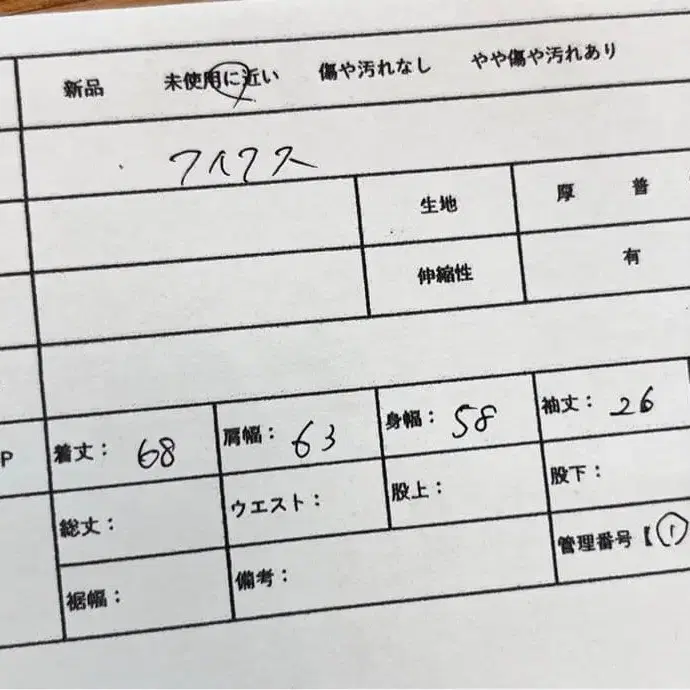 新品 未使用に近い 傷や汚れなし やや傷や汚れあり
生地 厚 普
伸縮性 有
P 着丈: 68 肩幅: 63 身幅: 58 袖丈: 26
総丈: ウエスト: 股上: 股下:
裾幅: 備考: 管理番号【①